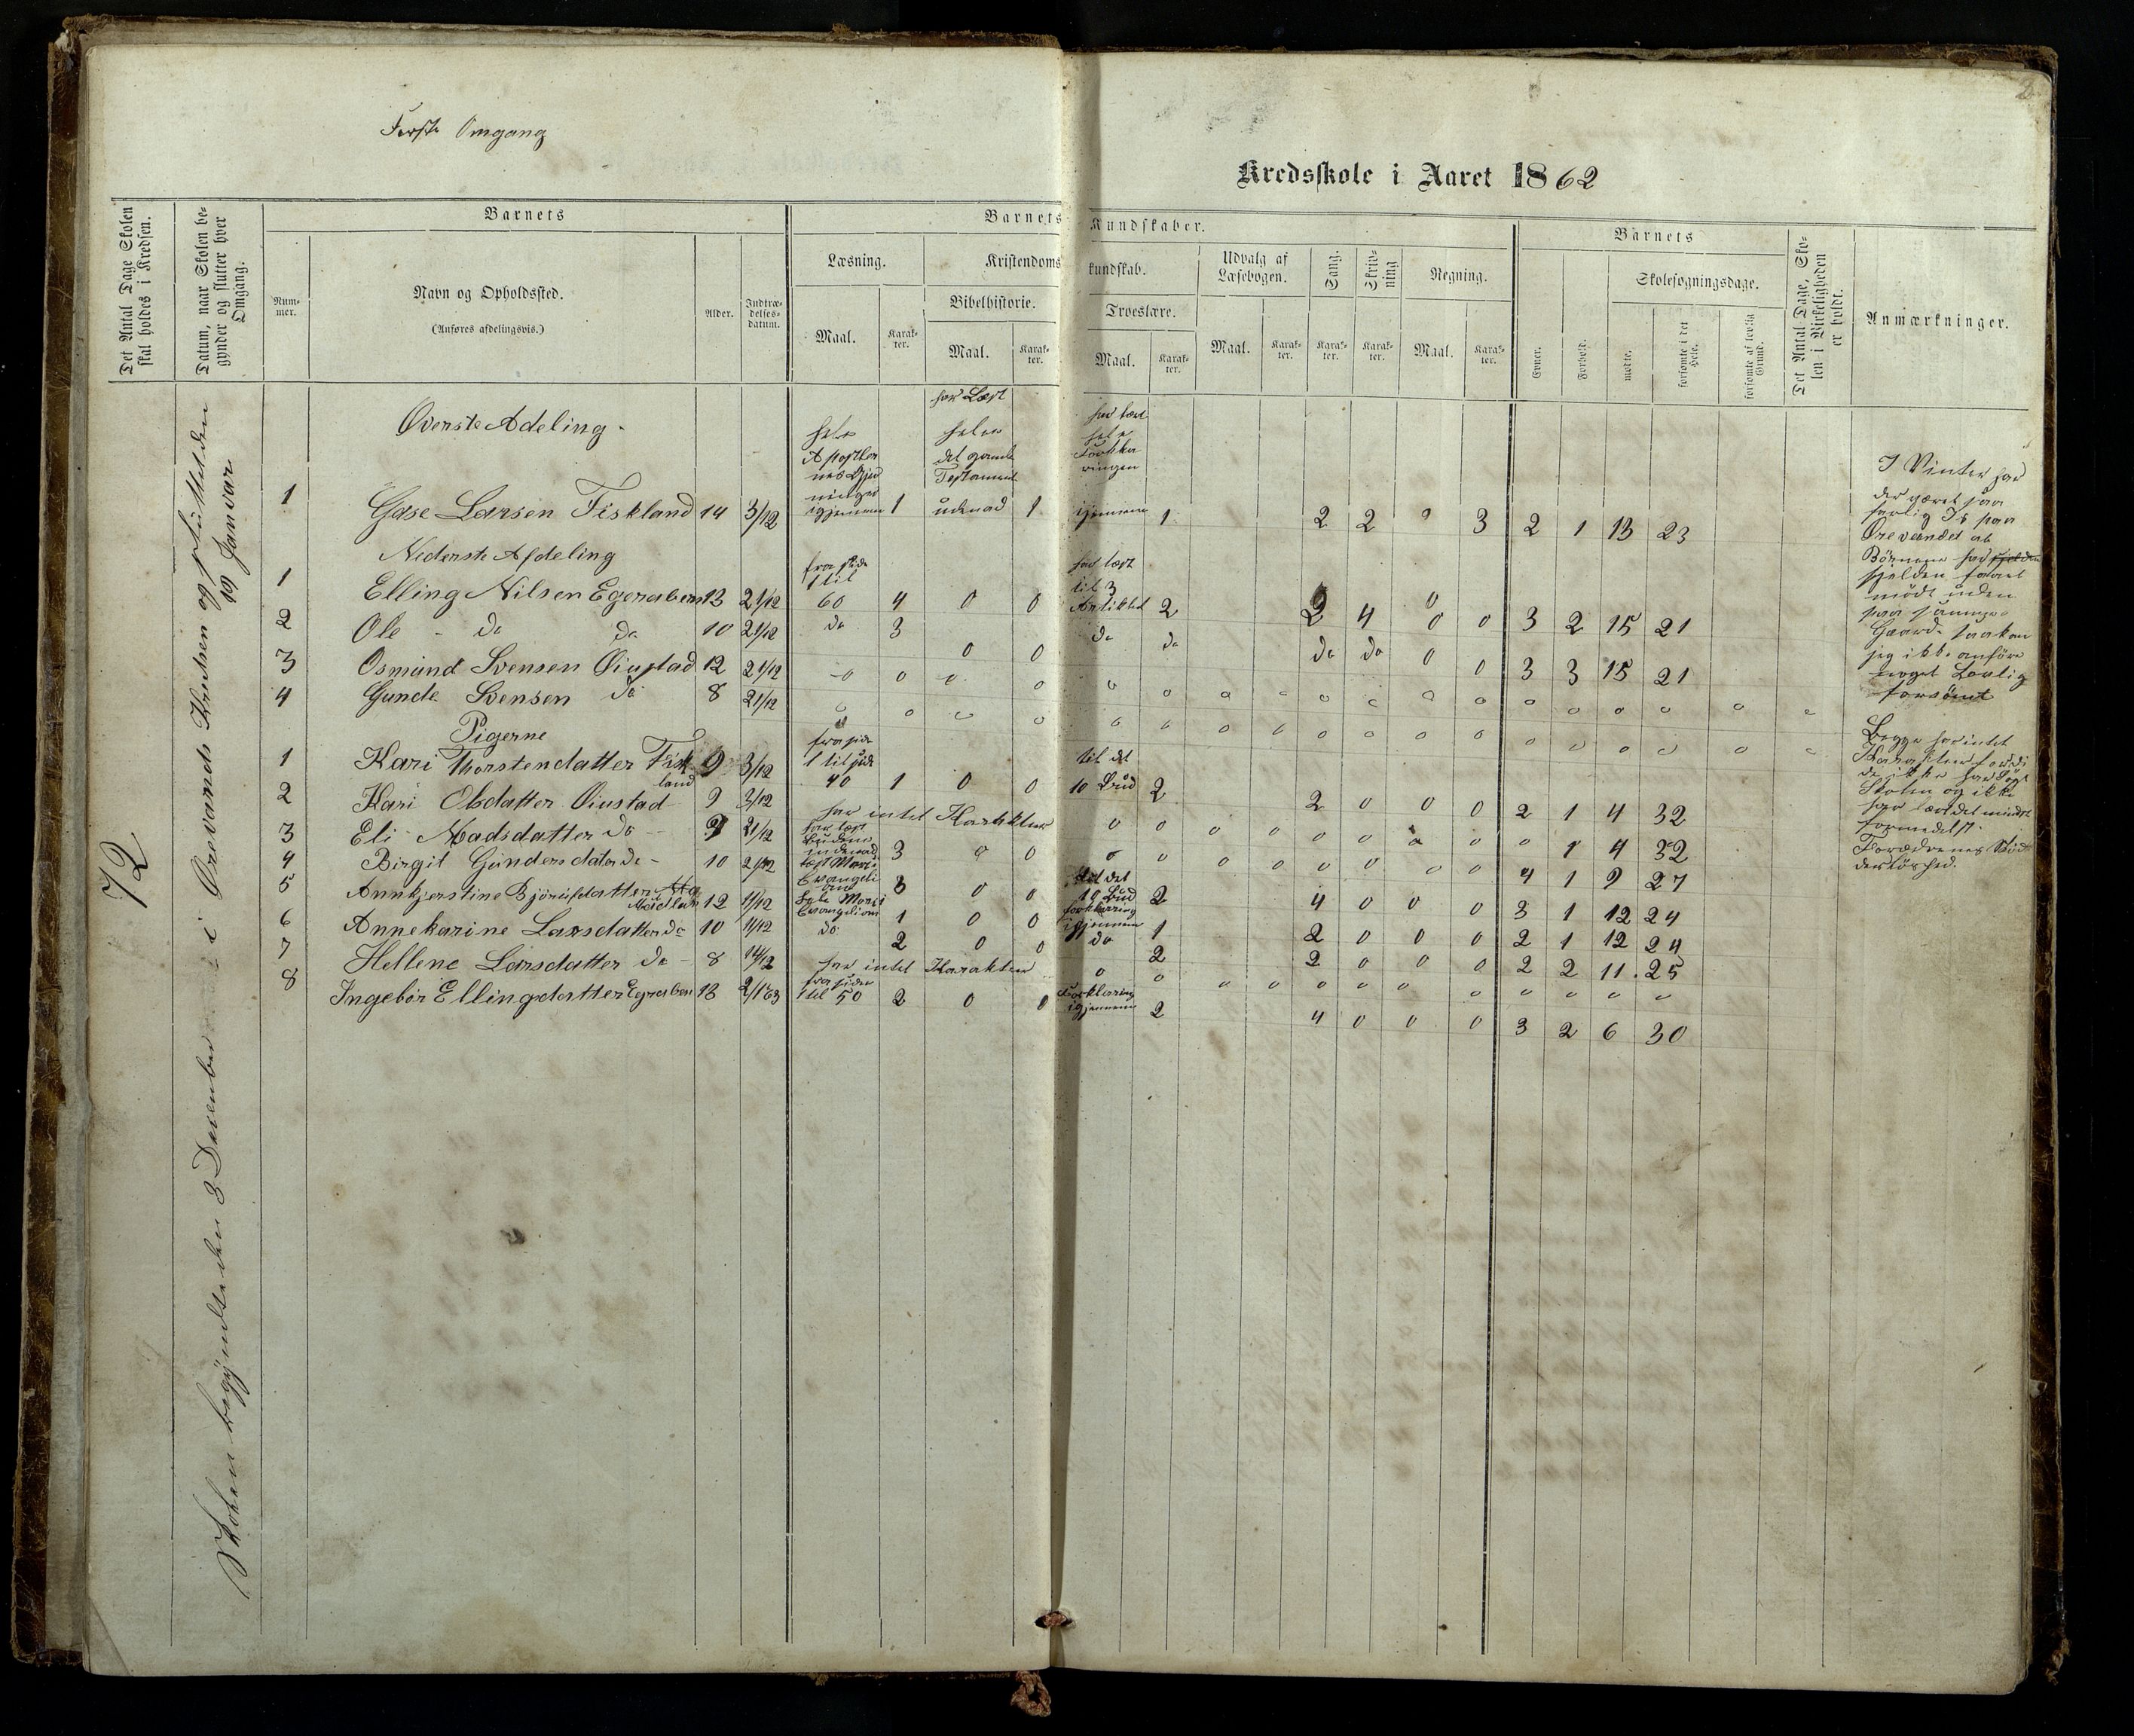 Første Omgang
Kredsskole i Aaret 1862
Det Antal Dage Skolen skal holdes i Kredsen.
Datum, naar Skolen begynder og slutter hver Omgang.
Barnets
Nummer.
Navn og Opholdssted.
(Anføres afdelingsvis.)
Alder.
Indtrædelsesdatum.
Barnets Kundskaber.
Læsning.
Maal.
Karakter.
Kristendomskundskab.
Bibelhistorie.
Maal.
Karakter.
Troeslære.
Maal.
Karakter.
Udvalg af Læsebogen.
Maal.
Karakter.
Sang.
Karakter.
Skrivning
Karakter.
Regning.
Maal.
Karakter.
Barnets
Evner.
Forhold.
Skolesøgningsdage.
mødte.
forsømte i det Hele.
forsømte af lovlig Grund.
Det Antal Dage, Skolen i Virkeligheden er holdt.
Anmærkninger.
72
Skolen begyndte den 3 Desember i Orevands Kredsen og sluttet den 19 Januar
Øverste Adeling
1 Gase Larsen Fiskland 14 3/12 hele Apostlernes Gjerninger igjennem 1 har Læst hele det gamle Testament udenad 1 har læst hele Forklaringen igjennem 1 2 2 0 3 2 1 13 23
Nederste Afdeling
1 Elling Nilsen Egeraben 13 21/12 fra side 1 til 60 4 0 0 har læst til 3 Artiklel 2 2 4 0 0 3 2 15 21
2 Ole - do do 10 21/12 do 3 0 0 do do do do 0 0 3 3 15 21
3 Osmund Svensen Øiustad 12 21/12 0 0 0 0 0 0 0 0 0 0 0 0 0 0 0 0
4 Gunde Svensen do 8 21/12 0 0 0 0 0 0 0 0 0 0 0 0 0 0 0 0
Pigerne
1 Kari Thorstendatter Fiskland 9 3/12 fra side 1 til side 40 1 0 0 til det 10 Bud 2 2 0 0 0 2 1 4 32
2 Kari Olsdatter Øiustad 9 3/12 har intet Karakter 0 0 0 0 0 0 0 0 0 1 4 32
3 Eli Madsdatter do 9 21/12 har læst Budene indenad 3 0 0 0 0 0 0 0 0 0 0 4 1 9 27
4 Birgit Gundersdater do - 10 21/12 læst Marci Evangelium 3 0 0 til det 10 Bud 2 4 0 0 0 3 1 12 24
5 Annkjerstine Bjørnsdatter 12 11/12 hele Marci Evangelium 1 0 0 forklaring igjennem 1 2 0 0 0 2 1 12 24
6 Annekarine Larsdatter do 10 11/12 do 2 0 0 do 2 2 0 0 0 2 2 11 25
7 Hellene Larsdatter do - 8 14/12 har intet Karakter 0 0 0 0 0 0 0 0 0 0 0 0
8 Ingebør Ellingsdatter Egeraben 13 2/1 63 fra side 1 til 50 2 0 0 Forklaring igjennem 2 4 0 0 0 3 2 6 30
I Vinter har
der været saa
farlig Is paa
Orevandet at
Børnene har
sjelden faaet
mødt uden
paa samme
Gaard saa kan
jeg ikke anføre
noget Lovlig
forsømt
Begge har intet
Karakter fordi
de ikke har søgt
Skolen og ikke
har lært det mindste
formedelst
Forældrenes